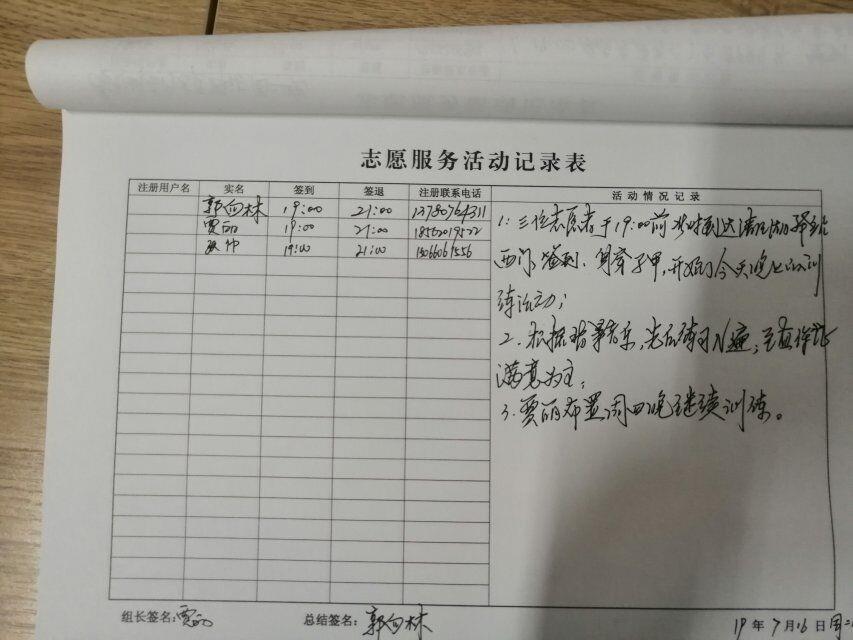 志愿服务活动记录表
注册用户名 实名 签到 签退 注册联系电话 活动情况记录
郭向林 19:00 21:00
贾丽 19:00 21:00
19:00 21:00
1.三位志愿者于19:00前准时到达
西门签到、身穿马甲,开始了今天晚上的训
练活动;
2.根据指挥音乐,先后练习N遍,至
满意为主;
3.贾丽布置周四晚继续训练。
组长签名:贾丽 总结签名:郭向林 19年7月16日周二